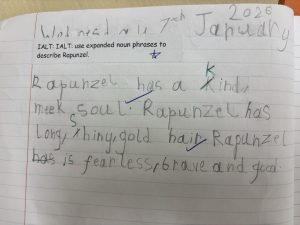 Wednesday 7th January 2026
IALT: IALT: use expanded noun phrases to
describe Rapunzel.
Rapunzel has a kind,
meek soul. Rapunzel has
long, shiny, gold hair. Rapunzel
has is fearless, brave and good.